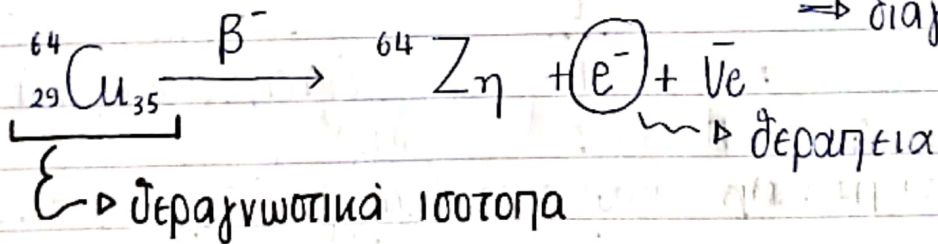 ⇒ διαγ
⁶⁴₂₉Cu₃₅ —β⁻→ ⁶⁴Zn + e⁻ + ν̄e
⇝ θεραπεια
⇝ θεραγνωστικά ισοτοπα